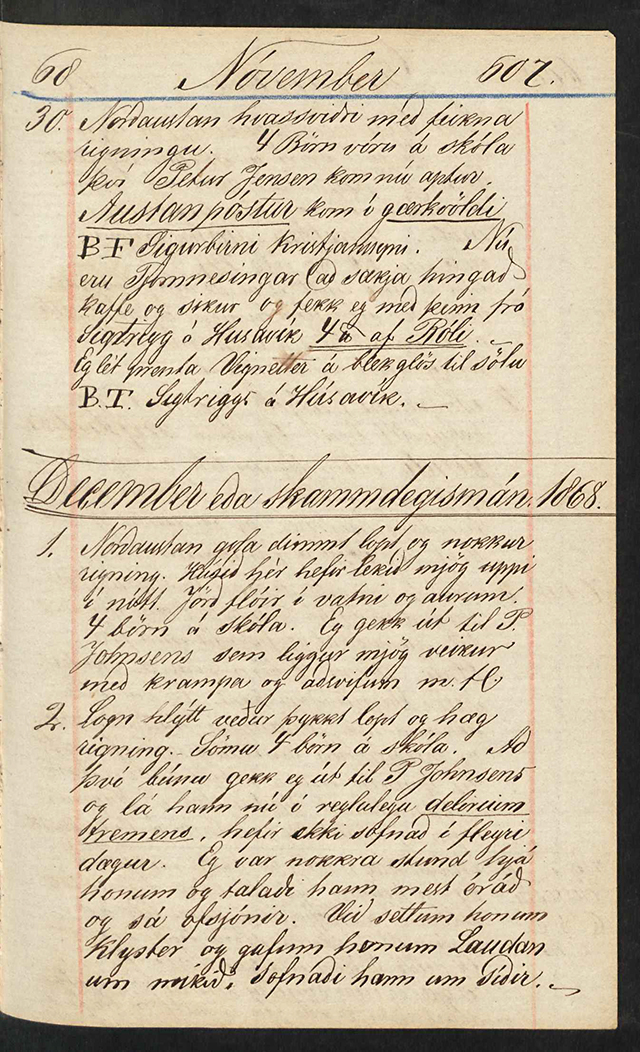 68 Nóvember 607.
30. Nordaustan hvassviðri með feikna
rigningu. 4 Börn vóru á skóla
því Petur Jensen kom nú aptur.
Austanpostur kom í gærkvöldi
BF Sigurbirni Kristjanssyni. Nú
eru Tjörnesingar að sækja hingað
kaffe og sikur og fekk eg með þeim frá
Sigtrigg á Husavík 4 af Róli.
Eg lét prenta Vignetter á blekglös til sölu
B.T. Sigtriggs á Húsavík.
December eða skammdegismán. 1868.
1. Nordaustan gola dimmt lopt og nokkur
rigning. Húsið hér hefir lekið mjög uppi
í nótt. Jörð flóir í vatni og aurum.
4 börn á skóla. Eg gekk út til P.
Johnsens sem liggur mjög veikur
með krampa og aðsvifum m. fl.
2. Logn hlýtt veður þykkt lopt og hæg
rigning. Sömu 4 börn á skóla. Að
því búnu gekk eg út til P Johnsens
og lá hann nú í reglulegu delirium
tremens, hefir ekki sofnað í fleyri
dægur. Eg var nokkra stund hjá
honum og talaði hann mest óráð
og sá ofsjónir. Við settum honum
Klyster og gáfum honum Laudan
um mikið, sofnaði hann um síðir.